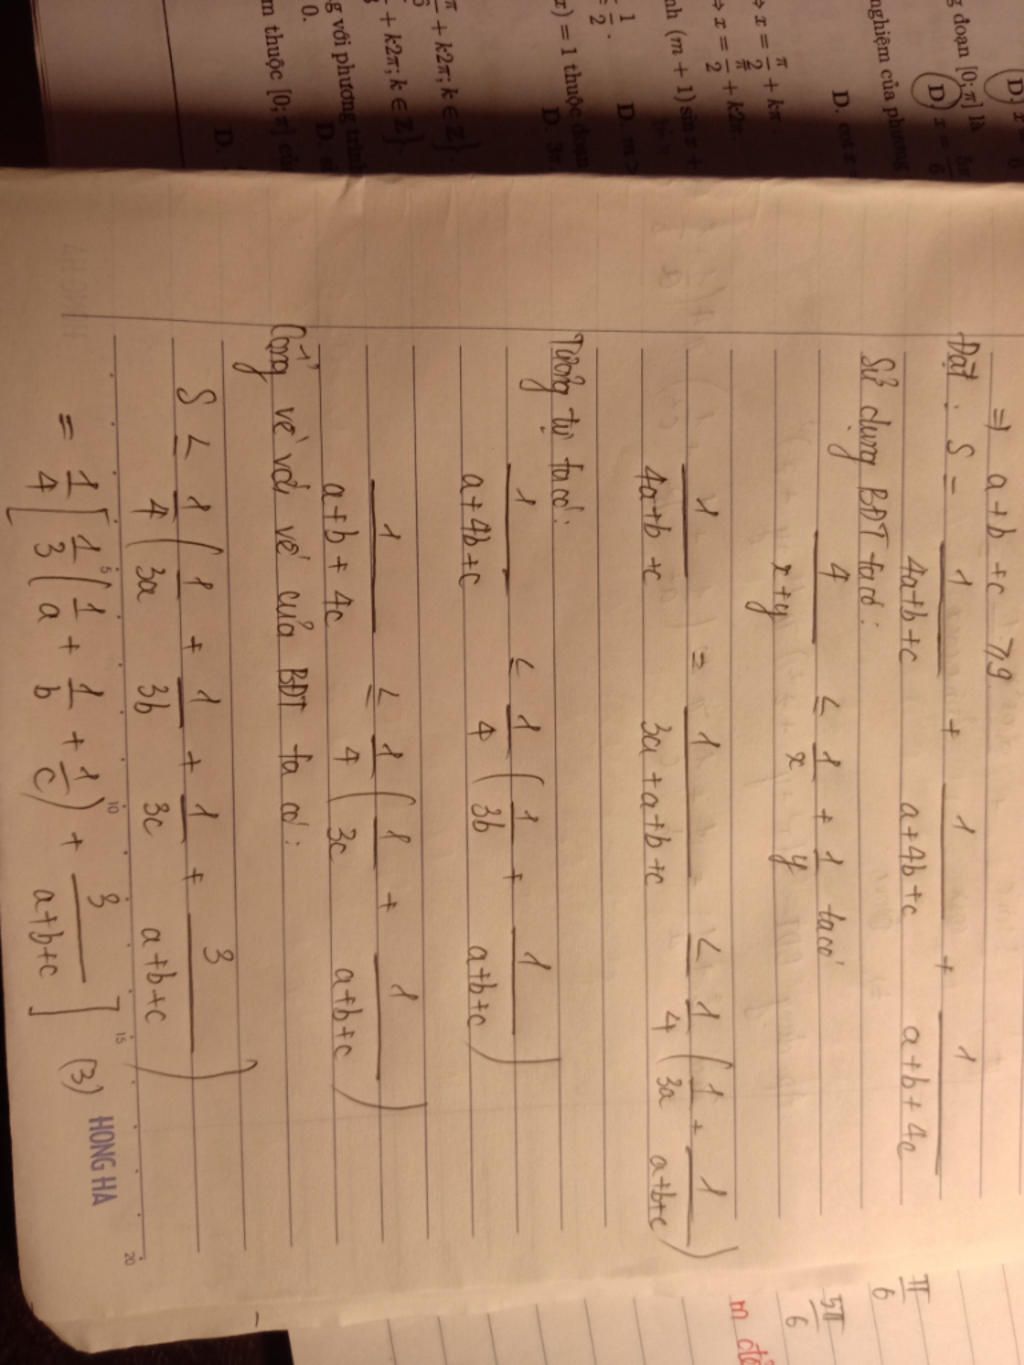 ⇒ a+b+c ≥ 9
Đặt: S = 1/(4a+b+c) + 1/(a+4b+c) + 1/(a+b+4c)
Sử dụng BĐT ta có:
4/(x+y) ≤ 1/x + 1/y ta có
1/(4a+b+c) = 1/(3a+a+b+c) ≤ 1/4 (1/3a + 1/(a+b+c))
Tương tự ta có:
1/(a+4b+c) ≤ 1/4 (1/3b + 1/(a+b+c))
1/(a+b+4c) ≤ 1/4 (1/3c + 1/(a+b+c))
Cộng vế với vế của BĐT ta có:
S ≤ 1/4 (1/3a + 1/3b + 1/3c + 3/(a+b+c))
= 1/4 [1/3 (1/a + 1/b + 1/c) + 3/(a+b+c)] (3)
5 10 15 20
HONG HA
D. x = π/6
g đoạn [0;π] là
D. x = 5π/6
nghiệm của phương
D. cot x =
⇔ x = π/2 + kπ.
⇔ x = π/2 + k2π.
nh (m + 1) sin x +
1/2.
D. m >
x) = 1 thuộc đoạn
D. 3π.
π/6 + k2π; k ∈ Z}.
+ k2π; k ∈ Z}.
g với phương trình
0.
D.
m thuộc [0; π] của
D.
π/6
5π/6
m để